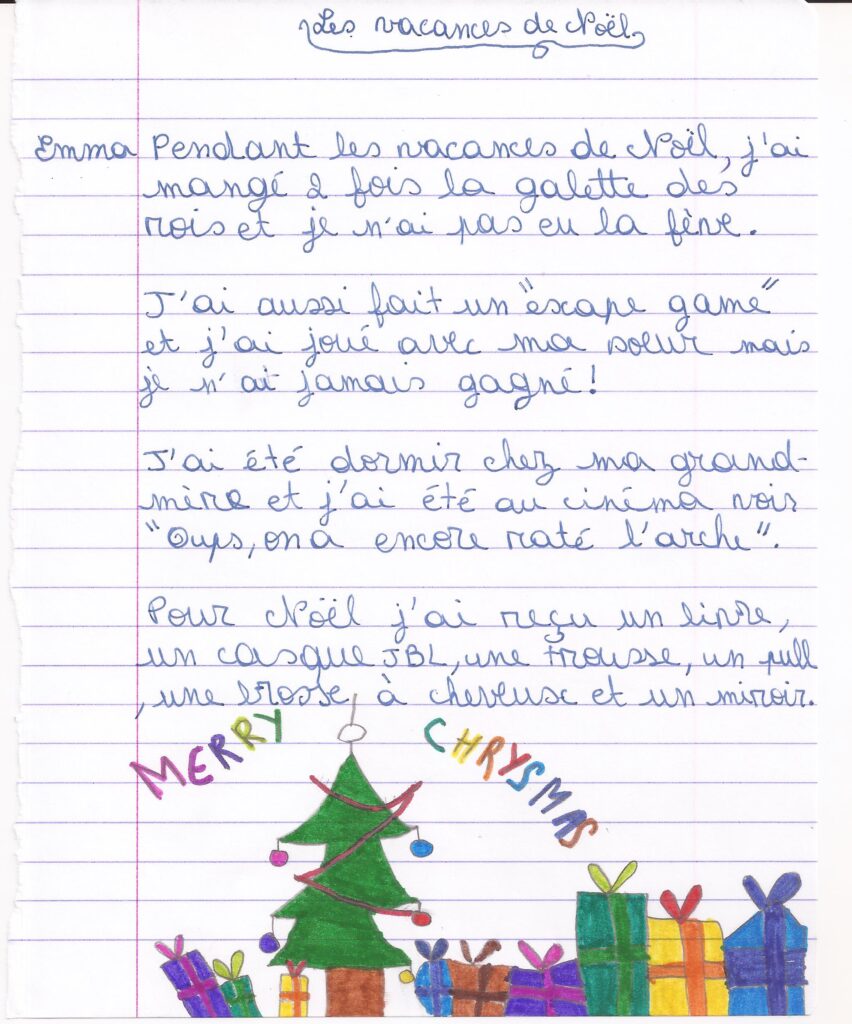 Les vacances de Noël
Emma Pendant les vacances de Noël, j'ai
mangé 2 fois la galette des
rois et je n'ai pas eu la fève.
J'ai aussi fait un "escape game"
et j'ai joué avec ma soeur mais
je n'ai jamais gagné!
J'ai été dormir chez ma grand-
mère et j'ai été au cinéma voir
"Oups, on a encore raté l'arche".
Pour Noël j'ai reçu un livre,
un casque JBL, une trousse, un pull
, une brosse à cheveux et un miroir.
MERRY CHRYSMAS